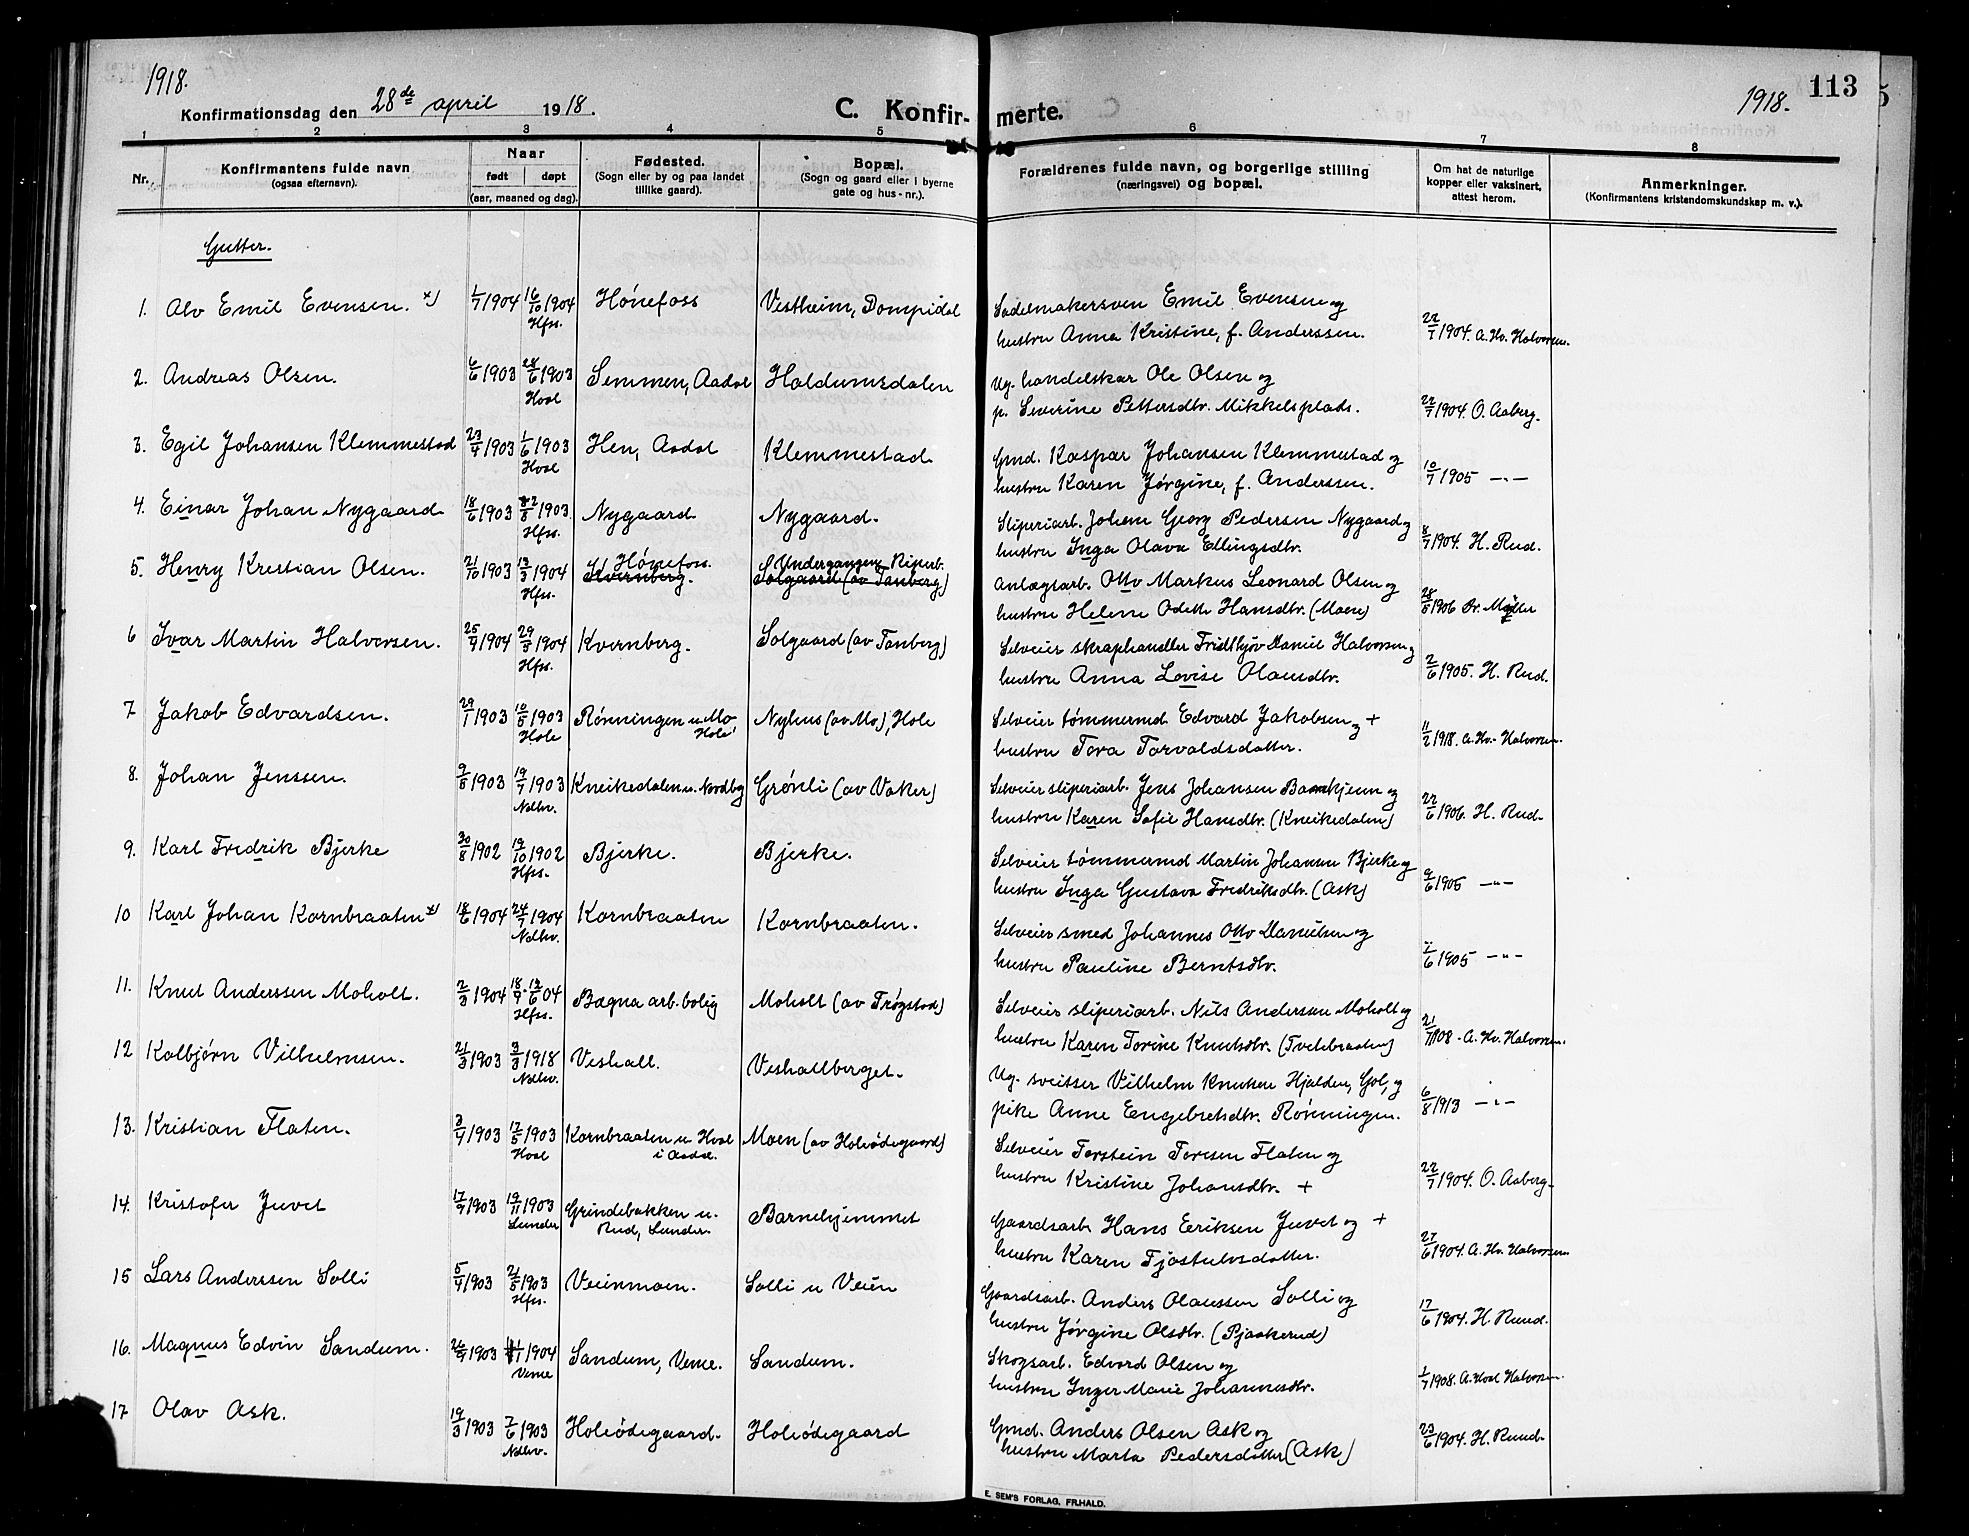 1918.
113
1918.
Konfirmationsdag den 28de april 1918.
C. Konfirmerte.
1 2 3 4 5 6 7 8
Nr.
Konfirmantens fulde navn
(ogsaa efternavn).
Naar
født døpt
(aar, maaned og dag).
Fødested.
(Sogn eller by og paa landet
tillike gaard).
Bopæl.
(Sogn og gaard eller i byerne
gate og hus-nr.).
Forældrenes fulde navn, og borgerlige stilling
(næringsvei) og bopæl.
Om hat de naturlige
kopper eller vaksinert,
attest herom.
Anmerkninger.
(Konfirmantens kristendomskundskap m. v.).
Gutter.
1. Alv Emil Evensen. x) 1/7 1904 16/10 1904 Hfss. Hónefoss Vestheim, Dompidal Sadelmakersven Emil Evensen og
hustru Anna Kristine, f. Anderssen. 22/7 1904. A. Hv. Halvorsen.
2. Andreas Olsen. 6/6 1903 28/6 1903 Hval Semmen, Aadal Haldumsdalen Ug. handelskar Ole Olsen og
p. Severine Pettersdtr. Mikkelsplads. 22/7 1904. O. Aaberg.
3. Egil Johansen Klemmestad 23/4 1903 1/6 1903 Hval Hen, Aadal Klemmestad Gmd. Kaspar Johansen Klemmestad og
hustru Karen Jórgine, f. Anderssen. 10/7 1905 -"-
4. Einar Johan Nygaard 18/6 1903 2/8 1903 Hfss. Nygaard Nygaard. Sliperiarb. Johan Georg Pedersen Nygaard og
hustru Inga Olava Ellingsdtr. 8/7 1904. H. Rud.
5. Henry Kristian Olsen. 21/10 1903 13/3 1904 Hfss. Hónefoss. Kvernberg. Undergangen, Riperb. Solgaard (av Tanberg) Anlægsarb. Otto Markus Leonard Olsen og
hustru Helene Odette Hansdtr. (Moen) 28/5 1906 Dr. Møller
6 Ivar Martin Halvorsen. 25/4 1904 29/5 1904 Hfss. Kvernberg. Solgaard (av Tanberg) Selveier skraphandler Fridthjov Daniel Halvorsen og
hustru Anna Lovise Olausdtr. 2/6 1905. H. Rud.
7 Jakob Edvardsen. 29/1 1903 10/5 1903 Hole Rónningen u. Mo Hole Nyhus (av Mo), Hole Selveier tómmermd Edvard Jakobsen og +
hustru Tora Torvaldsdatter. 11/2 1918. A. Hv. Halvorsen.
8. Johan Jenssen. 9/5 1903 19/7 1903 Ndhv. Kneikedalen u. Nordby Grónli (av Vaker) Selveier sliperiarb. Jens Johansen og
hustru Karen Sofie Hansdtr. (Kneikedalen) 22/6 1906. H. Rud.
9. Karl Fredrik Bjerke 30/8 1902 19/10 1902 Hfss. Bjerke. Bjerke. Selveier tómmermd Martin Johansen Bjerke og
hustru Inga Gustava Fredriksdtr. (Ask) 9/6 1905 -"-
10 Karl Johan Kornbraaten x) 18/6 1904 24/7 1904 Ndhv. Kornbraaten Kornbraaten. Selveier smed Johannes Otto Danielsen og
hustru Pauline Berntsdtr. 7/6 1905 -"-
11. Knut Anderssen Moholt. 2/3 1904 18/9. 12/6 04 Hfss. Bægna arb. bolig Moholt (av Trógstad) Selveier sliperiarb. Nils Andersen Moholt og
hustru Karen Torine Knutsdtr. (Tvetebraaten) 21/7 1908. A. Hv. Halvorsen.
12 Kolbjórn Vilhelmsen. 21/3 1903 3/3 1918 Ndhv. Veshall. Veshallberget. Ug. sveitser Vilhelm Knutsen Hjalden, Gol, og
pike Anne Engebretsdtr. Rónningen. 6/8 1913 -"-
13. Kristian Flaten. 3/4 1903 17/5 1903 Hval Kornbraaten u. Hval i Aadal. Moen (av Holeódegaard) Selveier Torstein Toresen Flaten og
hustru Kristine Johansdtr. + 22/7 1904. O. Aaberg.
14. Kristofer Juvet 17/9 1903 19/11 1903 Lunder Grindebakken u. Rud, Lunder. Barnehjemmet Gaardsarb. Hans Eriksen Juvet og +
hustru Karen Tjostulvsdatter. 27/6 1904. A. Hv. Halvorsen
15 Lars Anderssen Solli 5/4 1903 21/5 1903 Hfss. Veienmoen. Solli u Veien Gaardsarb. Anders Olaussen Solli og
hustru Jórgine Olsdtr. (Pjaakerud) 17/6 1904. H. Ruud.
16. Magnus Edvin Sandum. 26/9 1903 1904 Veme Sandum, Veme. Sandum. Skogsarb. Edvard Olsen og
hustru Inger Marie Johannesdtr. 1/7 1908. A. Hval Halvorsen.
17 Olav Ask. 19/3 1903 7/6 1903 Ndhv. Holeódegaard. Holeódegaard Gmd. Anders Olsen Ask og
hustru Marta Pedersdatter (Ask) 23/6 1904. H. Ruud.
E. SEM'S FORLAG, FR.HALD.